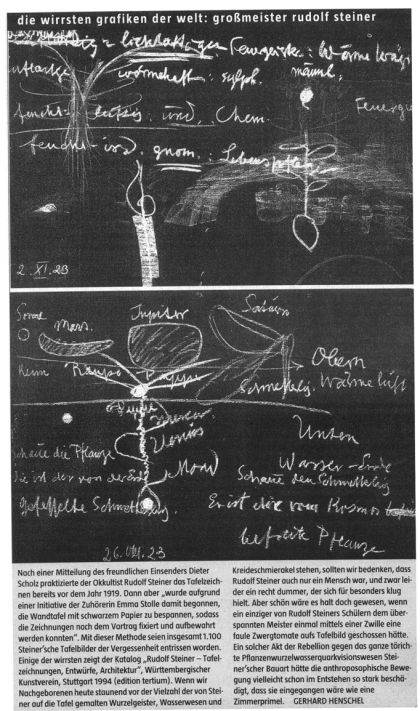 die wirrsten grafiken der welt: großmeister rudolf steiner
Feuergeister: Wärme
wärmehaft: sylph. männl.
feucht-luftig: und. Chem.
Feuergei
feucht-ird. gnom:
2. XI. 23
Sonne
Mars.
Jupiter
Saturn
Raupe
Puppe
Obern
Schmetterling. Wärme Luft
Venus
Unten
Schaue die Pflanze
Mond
Wasser-Erde
Schaue den Schmetterling
Gefesselte Schmetterling
Er ist die vom Kosmos
befreite Pflanze
26. Okt. 23
Nach einer Mitteilung des freundlichen Einsenders Dieter
Scholz praktizierte der Okkultist Rudolf Steiner das Tafelzeich-
nen bereits vor dem Jahre 1919. Dann aber „wurde aufgrund
einer Initiative der Zuhörerin Emma Stolle damit begonnen,
die Wandtafel mit schwarzem Papier zu bespannen, sodass
die Zeichnungen nach dem Vortrag fixiert und aufbewahrt
werden konnten". Mit dieser Methode seien insgesamt 1.100
Steiner'sche Tafelbilder der Vergessenheit entrissen worden.
Einige der wirrsten zeigt der Katalog „Rudolf Steiner – Tafel-
zeichnungen, Entwürfe, Architektur", Württembergischer
Kunstverein, Stuttgart 1994 (edition tertium). Wenn wir
Nachgeborenen heute staunend vor der Vielzahl der von Stei-
ner auf die Tafel gemalten Wurzelgeister, Wasserwesen und
Kreideschmierakel stehen, sollten wir bedenken, dass
Rudolf Steiner auch nur ein Mensch war, und zwar lei-
der ein recht dummer, der sich für besonders klug
hielt. Aber schön wäre es halt doch gewesen, wenn
ein einziger von Rudolf Steiners Schülern dem über-
spannten Meister einmal mittels einer Zwille eine
faule Zwergtomate aufs Tafelbild geschossen hätte.
Ein solcher Akt der Rebellion gegen das ganze törich-
te Pflanzenwurzelwasserquarkvisionswesen Stei-
ner'scher Bauart hätte die anthroposophische Bewe-
gung vielleicht schon im Entstehen so stark beschä-
digt, dass sie eingegangen wäre wie eine
Zimmerprimel. GERHARD HENSCHEL